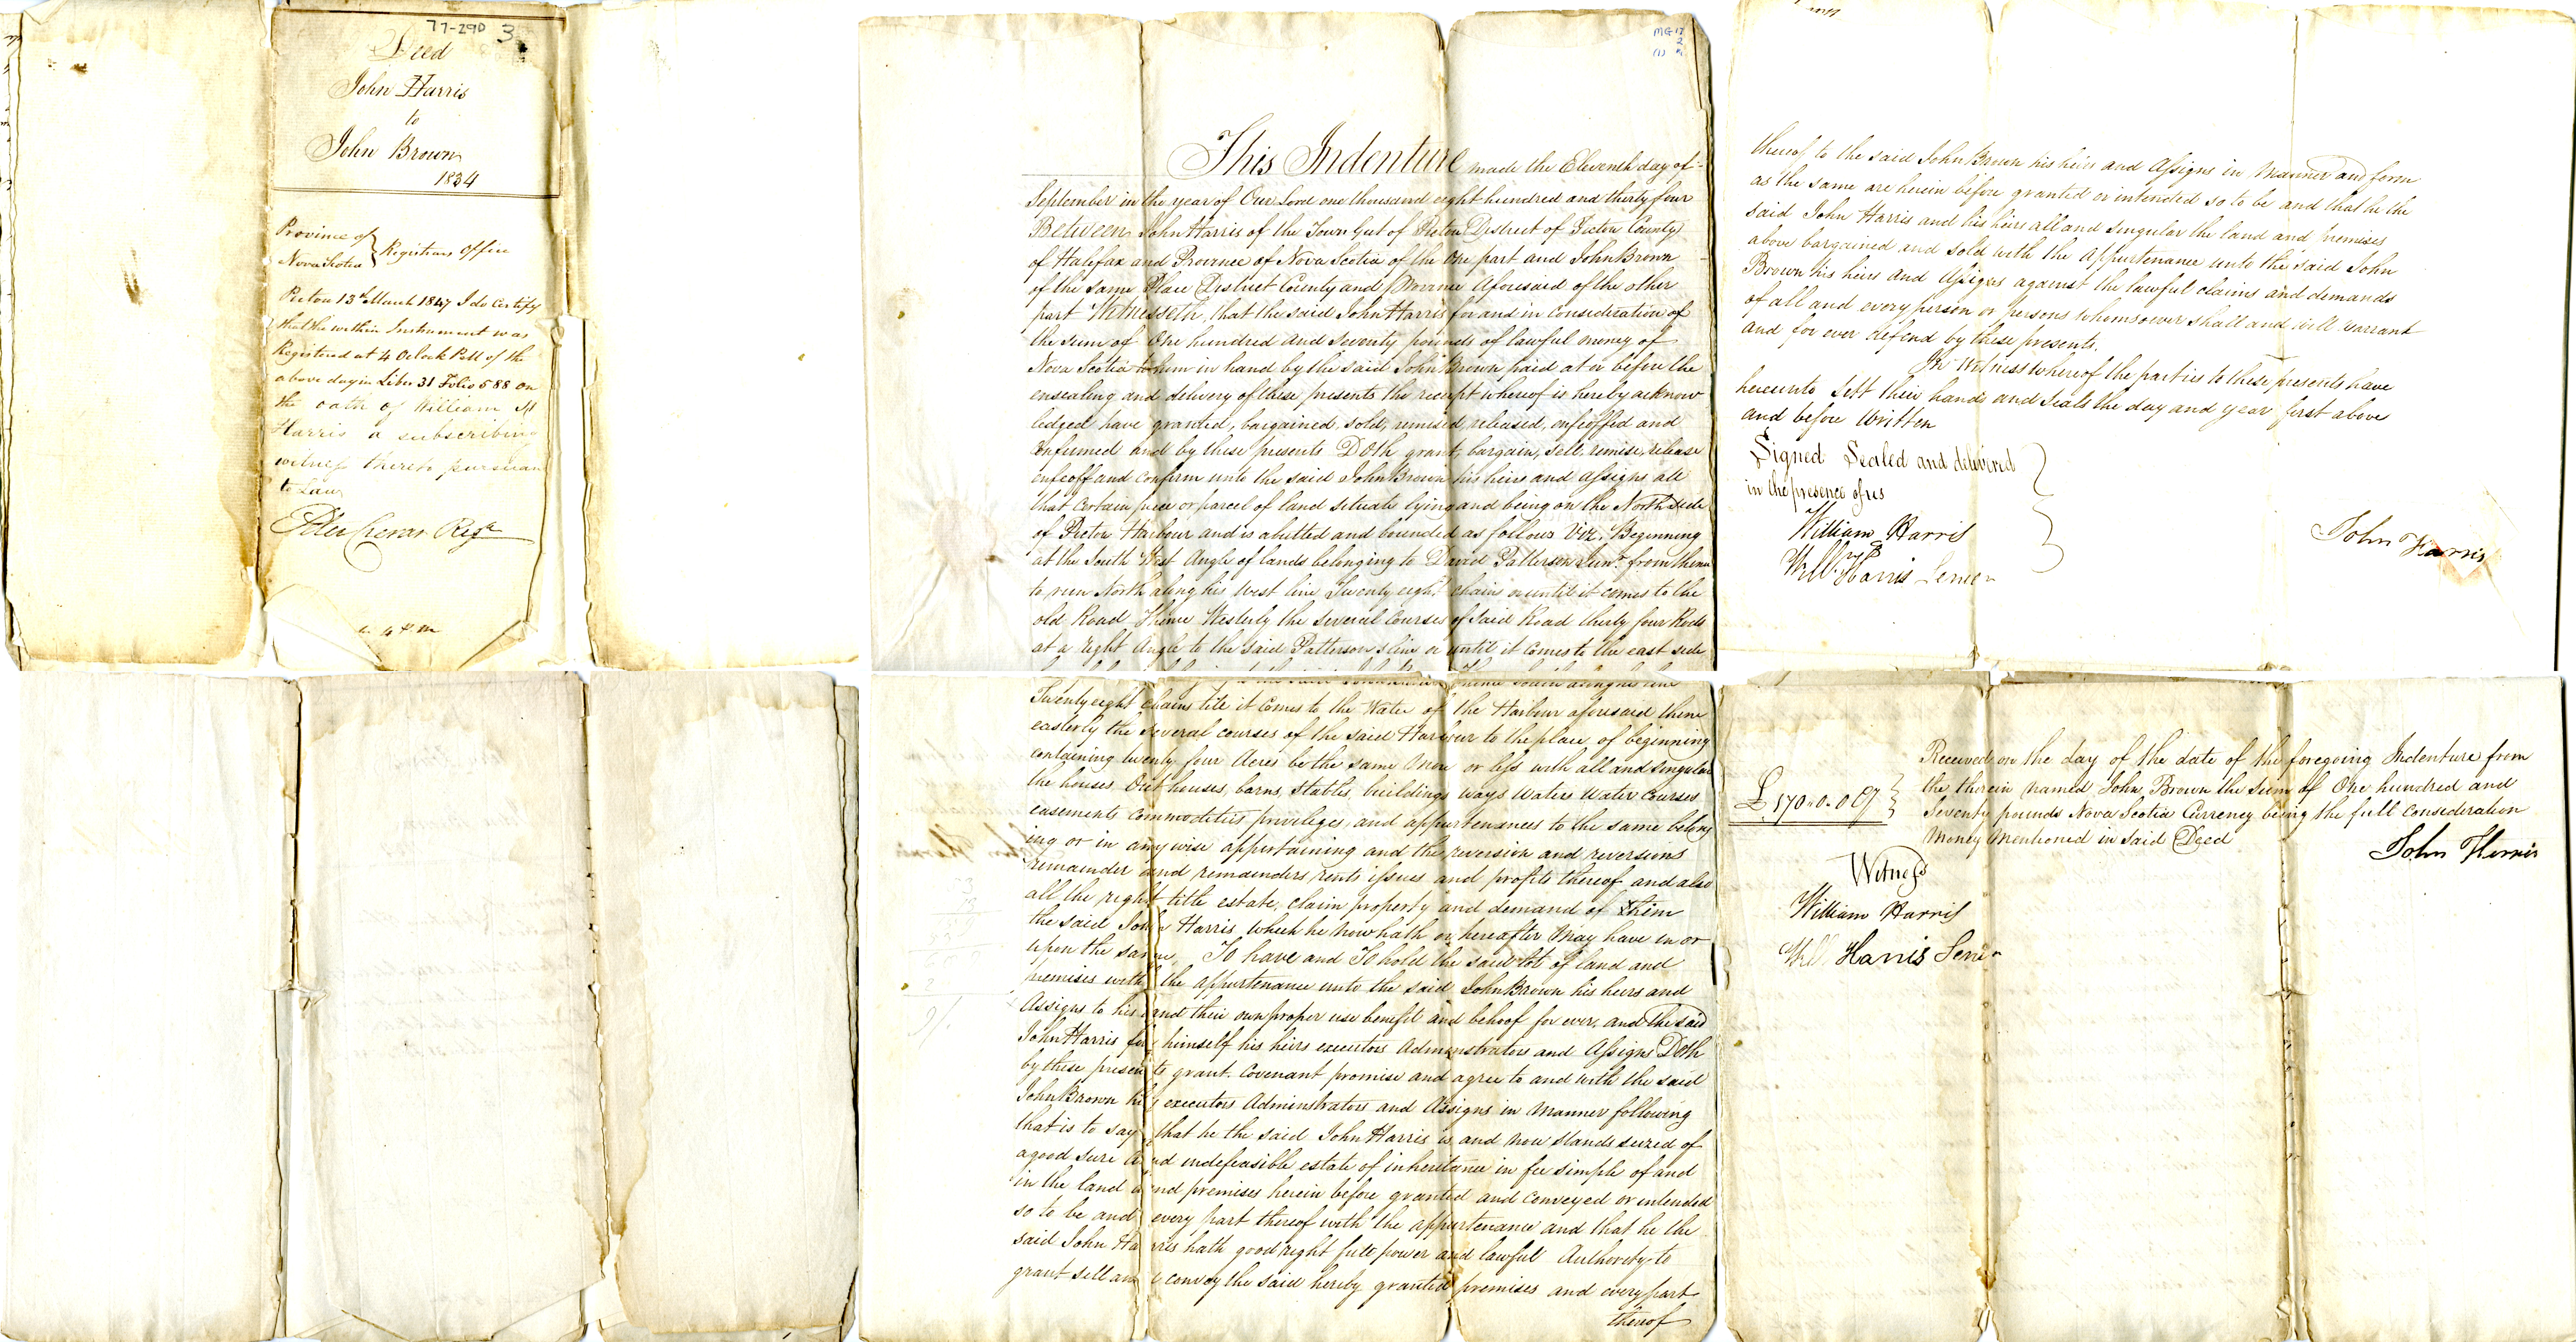 77-290 3
Deed
John Harris
to
John Brown
1834
Province of } Registrars Office
Nova Scotia
Pictou 13th March 1847 I do Certify
that the within Instrument was
Registered at 4 Oclock P.M of the
above day in Liber 31 Folio 588 on
the oath of William
Harris a subscribing
witness thereto pursuant
to Law
Regr
4 P m
MG 12
2
(1)
This Indenture made the Eleventh day of
September in the year of Our Lord one thousand eight hundred and thirty four
Between John Harris of the Town Gut of Pictou District of Pictou County
of Halifax and Province of Nova Scotia of the One part and John Brown
of the Same Place District County and Province Aforesaid of the other
part Witnesseth, that the said John Harris for and in Consideration of
the sum of One hundred and Seventy pounds of lawful money of
Nova Scotia to him in hand by the said John Brown paid at or before the
ensealing and delivery of these presents the receipt whereof is hereby acknow
ledged have granted, bargained, sold, remised, released, enfeoffed and
Confirmed and by these presents Doth grant, bargain, sell, remise, release
enfeoff and Confirm unto the said John Brown his heirs and assigns all
that Certain piece or parcel of land situate lying and being on the North side
of Pictou Harbour and is abutted and bounded as follows Viz. Beginning
at the South West Angle of lands belonging to David Patterson Junr. from thence
to run North along his West line Twenty eight chains or until it comes to the
old Road Thence Westerly the Several Courses of Said Road thirty four Rods
at a right Angle to the said Pattersons line or until it Comes to the east side
Thence South along the line
Twenty eight chains till it Comes to the Water of the Harbour aforesaid thence
easterly the several courses of the said Harbour to the place of beginning
containing twenty four Acres be the same More or less with all and singular
the houses Out houses, barns, stables, buildings ways Waters Water Courses
easements Commodities priviliges, and appurtenances to the same belong
ing or in any wise appertaining and the reversion and reversions
remainder and remainders rents issues and profits thereof and also
all the right title estate, claim property and demand of him
the said John Harris which he now hath or hereafter May have in or
upon the same, To have and To hold the said lot of land and
premises with the appurtenance unto the said John Brown his heirs and
Assigns to his and their own proper use benefit and behoof for ever, and the said
John Harris for himself his heirs executors Adminstrators and Assigns Doth
by these presents grant. Covenant promise and agree to and with the said
John Brown his executors Adminstrators and Assigns in Manner following
that is to say that he the said John Harris is and now stands seized of
a good sure and indefeasible estate of inheritance in fee simple of and
in the land and premises herein before granted and Conveyed or intended
so to be and every part thereof with the appurtenance and that he the
said John Harris hath good right full power and lawful Authority to
grant sell and convey the said hereby granted premises and every part
thereof
thereof to the said John Brown his heirs and Assigns in Manner and form
as the same are herein before granted or intended so to be and that he the
said John Harris and his heirs all and singular the land and premises
above bargained and sold with the Appurtenance unto the said John
Brown his heirs and Assigns against the lawful claims and demands
of all and every person or persons whomsoever shall and will warrant
and for ever defend by these presents.
In Witness whereof the parties to these presents have
hereunto Sett their hands and Seals the day and year first above
and before Written
Signed Sealed and delivered
in the presence of us
William Harris
Will Harris Senier
John Harris
Received on the day of the date of the foregoing Indenture from
the therein named John Brown the Sum of One hundred and
£170..0..0 Cy } Seventy pounds Nova Scotia Currency being the full Consideration
Money Mentioned in Said Deed
John Harris
Witness
William Harris
Will Harris Senier